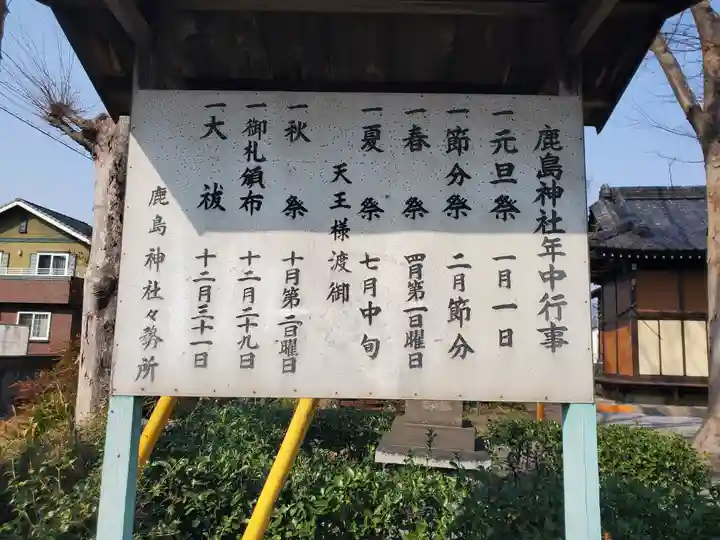 鹿島神社年中行事
一元旦祭 一月一日
一節分祭 二月節分
一春祭 四月第一日曜日
一夏祭 七月中旬
天王様渡御
一秋祭 十月第二日曜日
一御札頒布 十二月二十九日
一大祓 十二月三十一日
鹿島神社々務所